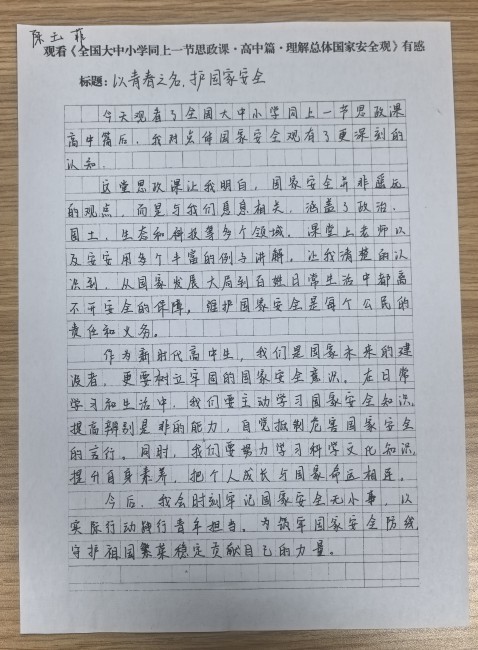 陈土菲
观看《全国大中小学同上一节思政课·高中篇·理解总体国家安全观》有感
标题：以青春之名，护国家安全
今天观看了全国大中小学同上一节思政课
高中篇后，我对总体国家安全观有了更深刻的
认知。
这堂思政课让我明白，国家安全并非遥远
的观点，而是与我们息息相关，涵盖了政治、
国土、生态和科技等多个领域。课堂上老师以
及安安用多个丰富的例与讲解，让我清楚的认
识到，从国家发展大局到百姓日常生活中都离
不开安全的保障，维护国家安全是每个公民的
责任和义务。
作为新时代高中生，我们是国家未来的建
设者，更要树立牢固的国家安全意识。在日常
学习和生活中，我们要主动学习国家安全知识，
提高辨别是非的能力，自觉抵制危害国家安全
的言行。同时，我们要努力学习科学文化知识，
提升自身素养，把个人成长与国家命运相连。
今后，我会时刻牢记国家安全无小事，以
实际行动践行青年担当，为筑牢国家安全防线，
守护祖国繁荣稳定贡献自己的力量。